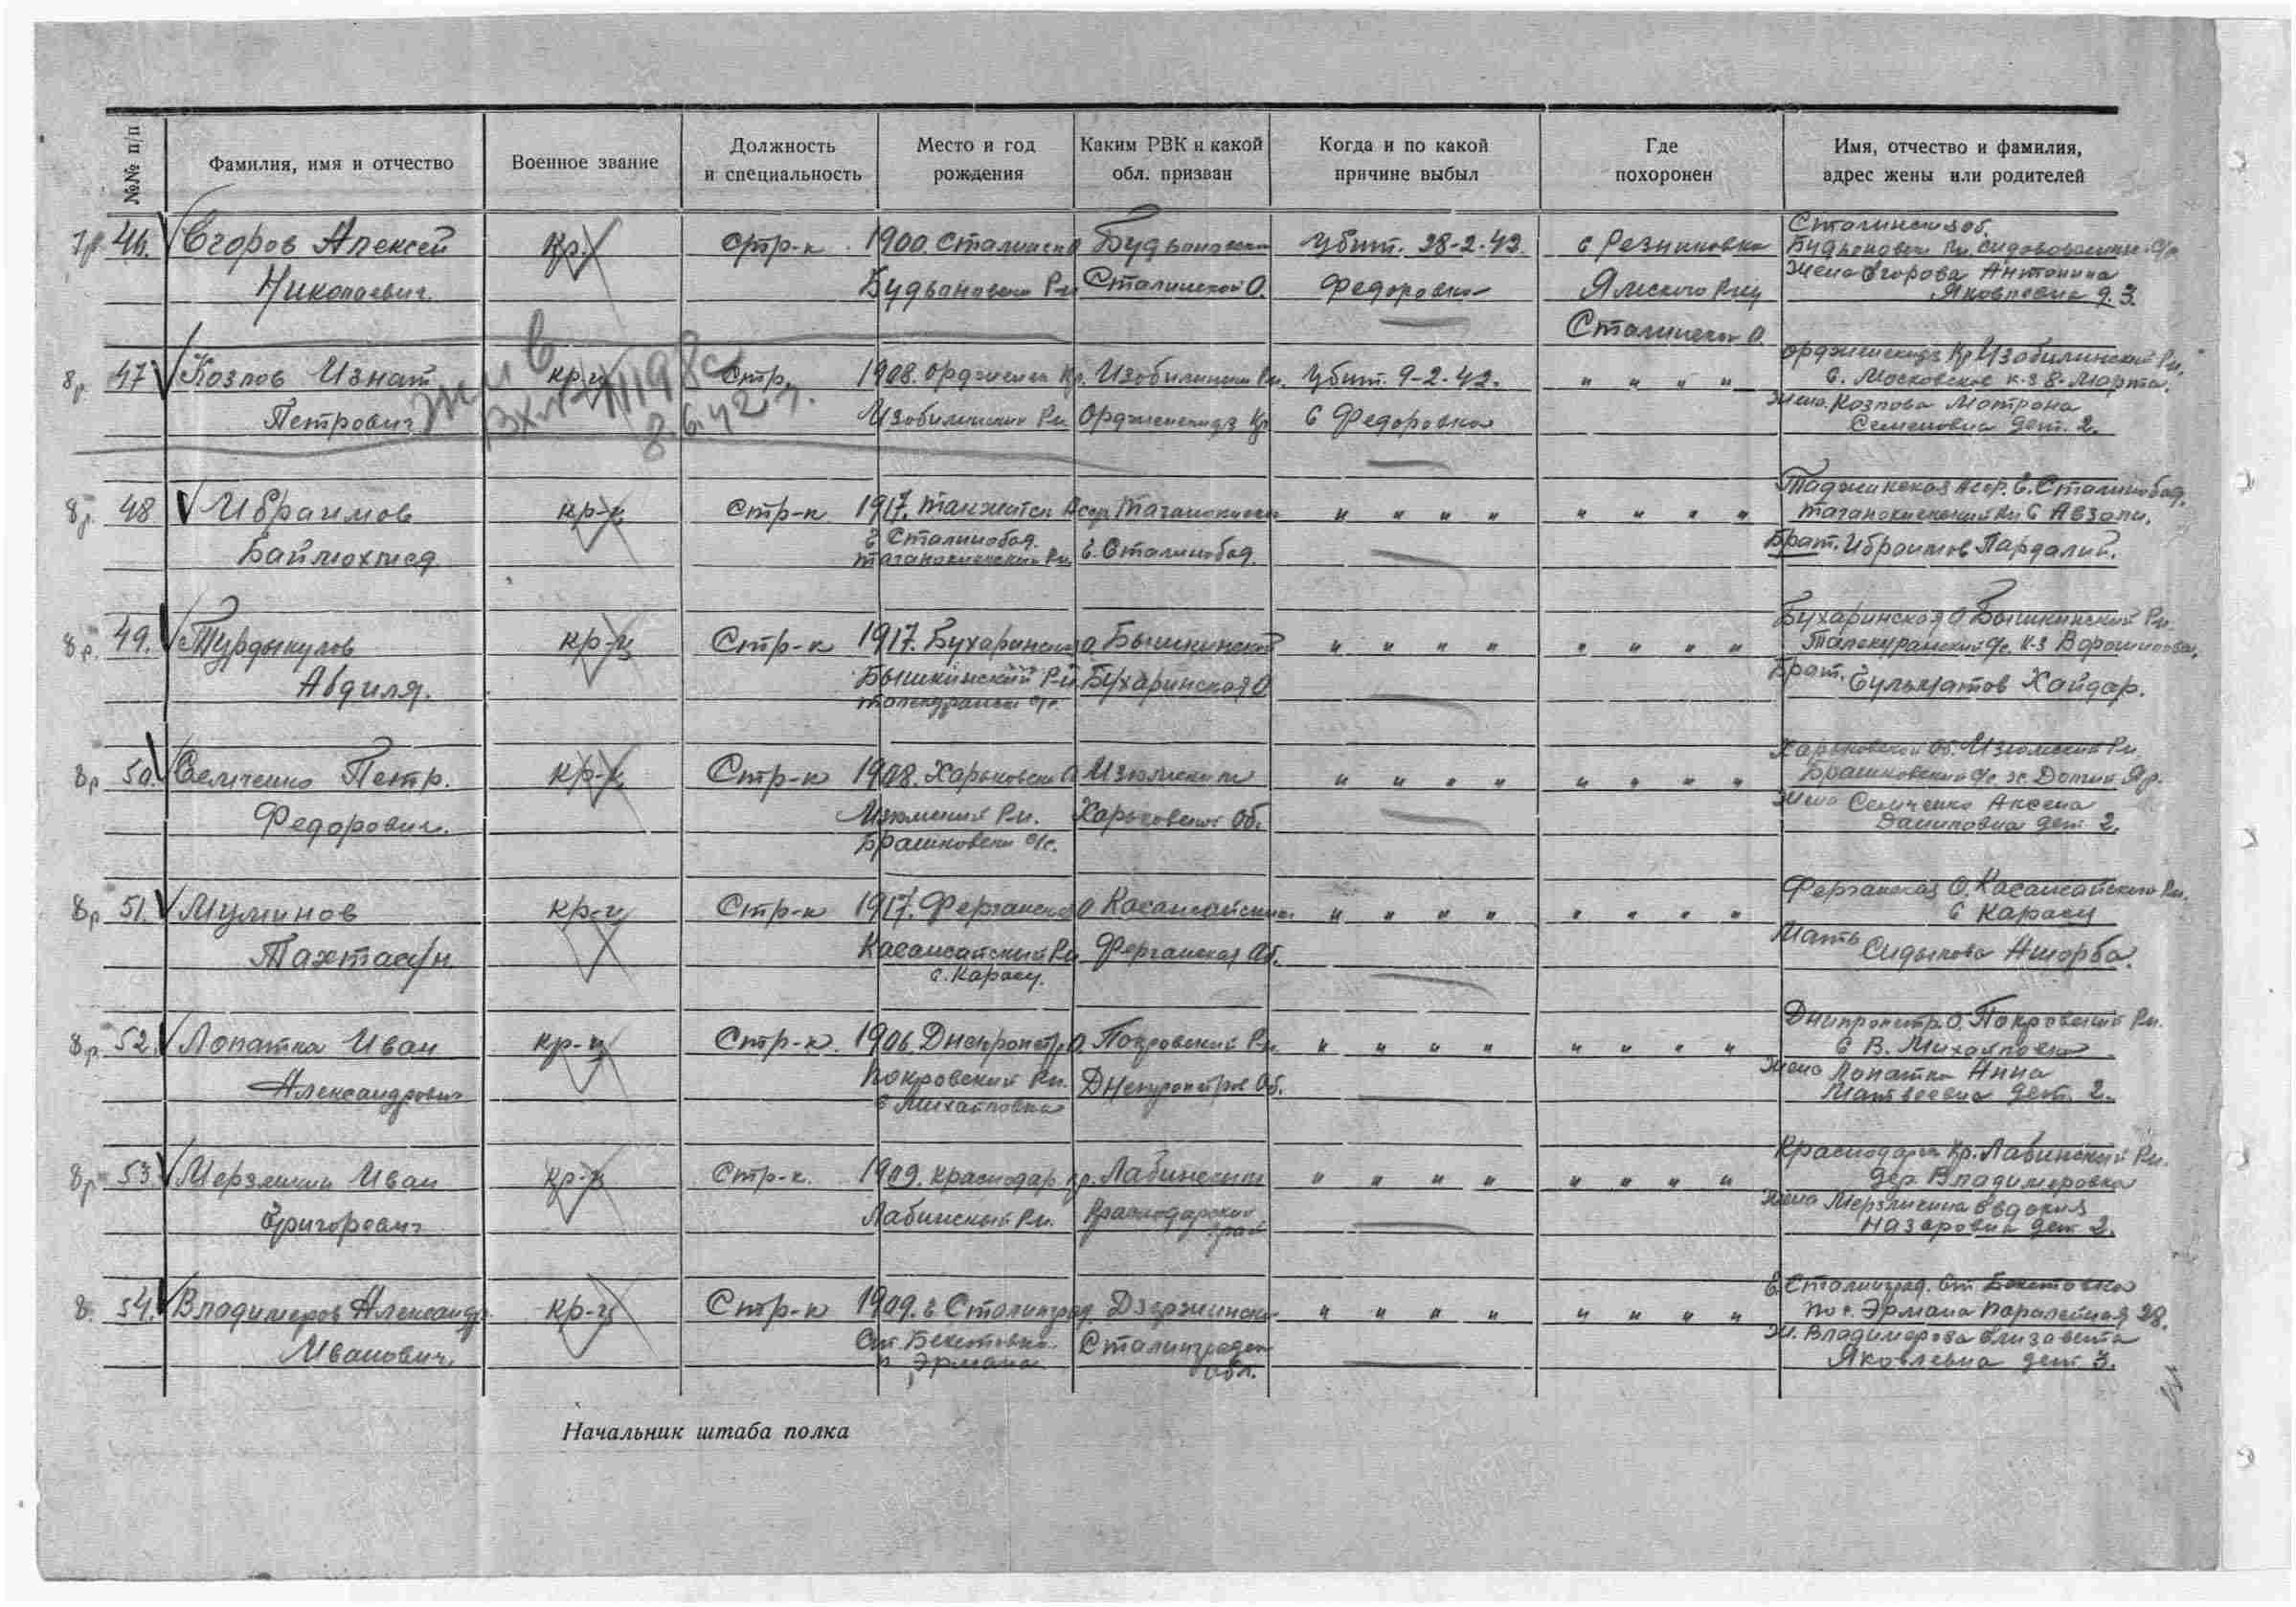 №№ п/п
Фамилия, имя и отчество
Военное звание
Должность
и специальность
Место и год
рождения
Каким РВК и какой
обл. призван
Когда и по какой
причине выбыл
Где
похоронен
Имя, отчество и фамилия,
адрес жены или родителей
46. Егоров Алексей
Николаевич
Стр-к
1900. Сталинск О
Будьоновск Рн
Будьоновский
Сталинской О.
Убит. 28-2-42.
Федоровка
с Резниковка
Ямского Рну
Сталинской О.
Сталинской об.
Жена Егорова Антонина
Яковлевна д. 3.
8р. 47 Козлов Игнат
Петрович
жив
8.6.42 г.
кр-ц
Стр.
1908. Орджоник Кр.
Изобилинский Рн.
Изобилинским Рн.
Орджоникидз Кр
Убит. 9-2-42.
с Федоровка
" " " "
Орджоникидз Кр Изобилинский Рн.
с. Московское к-з 8-Марта.
жена Козлова Мотрона
Семеновна дет. 2.
8р. 48 Ибраимов
Баймохмед
кр-ц
Стр-к
1917.
г Сталинобад.
г. Сталинобад.
" " " "
" " " "
г. Сталинобад,
Брат. Ибраимов Пардалий.
8р. 49. Турдыкулов
Абдиля.
кр-ц
Стр-к
1917. Бухаринская О.
Бышкинский Рн.
Бышкинский
Бухаринская О
" " " "
" " " "
Бухаринская О Бышкинский Рн.
Талекуранский с/с. к-з Ворошилова,
Брат. Гульматов Хайдар.
8р 50. Семченко Петр.
Федорович.
кр-ц
Стр-к
1908. Харьковск О
Изюмский Рн.
Брашковски с/с.
Изюмским
Харьковской Об.
" " " "
" " " "
Харьковской Об. Изюмский Рн
Брашковский с/с х. Долгий Яр.
жена Семченко Аксена
Даниловна дет 2.
8р 51. Муминов
Тахтасун
кр-ц
Стр-к
1917. Ферганской О
Касансайский Рн
с. Карасу.
Касансайским
Ферганская Об.
" " " "
" " " "
Ферганская О. Касансайского Рн.
с Карасу
Мать
Сидыкова Ашорба.
8р. 52. Лопатка Иван
Александрович
кр-ц
Стр-к.
1906. Днепропетр О.
Покровский Рн.
с Михайловка
Покровский Рн.
Днепропетров Об.
" " " "
" " " "
Днипропетр. О. Покровский Рн.
с В. Михайловка
жена Лопатка Анна
Матвеевна дет. 2.
8р 53 Мерзликин Иван
Григоревич
кр-ц
Стр-к.
1909. Краснодар кр.
Лабинский Рн.
Лабинским
Краснодарский
край
" " " "
" " " "
Краснодарск Кр. Лабинский Рн.
дер Владимеровка
жена Мерзликина Евдокия
Назаровна дет 2.
8. 54. Владимеров Александр.
Иванович.
кр-ц
Стр-к
1909. г Сталинград.
Ст. Бекетовка.
п Эрмана
Дзержински
Сталинградск
обл.
" " " "
" " " "
г. Сталинград. Ст Бекетовка
пос. Эрмана Паралейная 28.
ж. Владимерова Елизавета
Яковлевна дет 3.
Начальник штаба полка